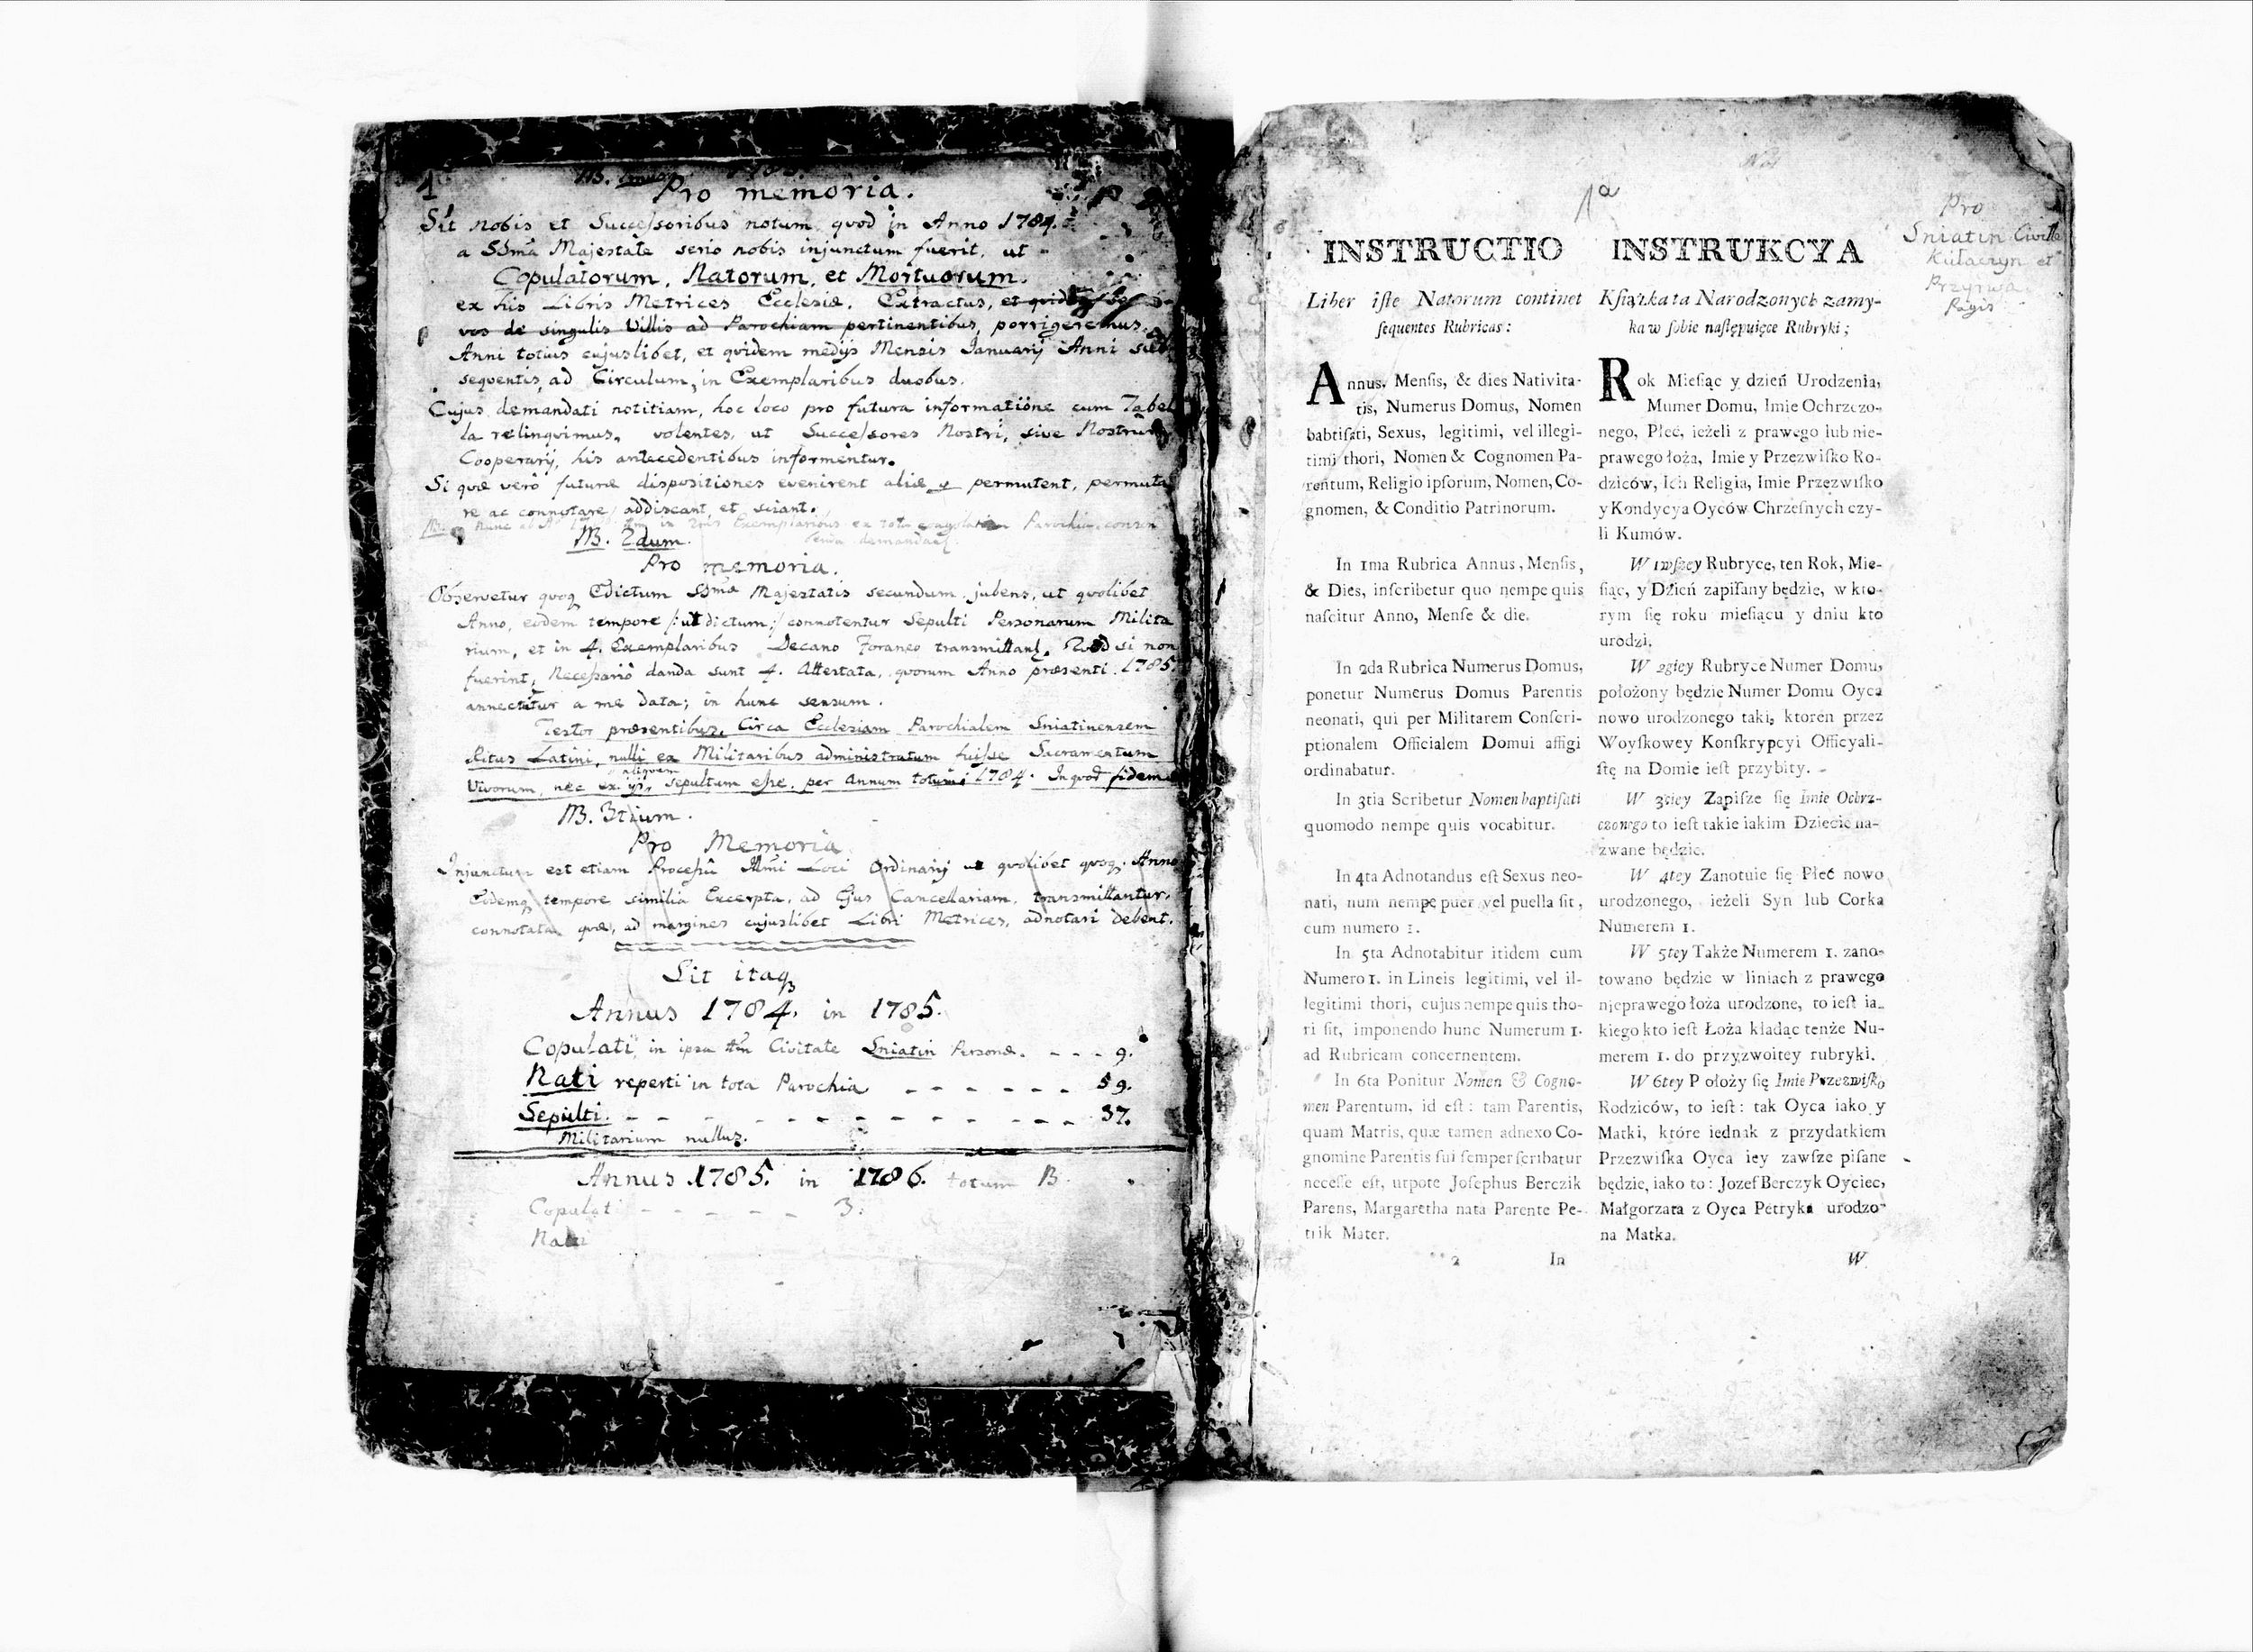 1
NB.
Pro memoria.
Sit nobis et Successoribus notum, qvod in Anno 1784.
a SSma Majestate serio nobis injunctum fuerit, ut
Copulatorum, Natorum, et Mortuorum.
ex his Libris Metrices Ecclesiæ, Extractus, et qvidem
vos de singulis Villis ad Parochiam pertinentibus, porrigeremus.
Anni totius cujuslibet, et qvidem medijs Mensis Januarij Anni sub
seqventis, ad Circulum, in Exemplaribus duobus.
Cujus demandati notitiam, hoc loco pro futura informatione cum Tabel
la relinqvimus, volentes, ut Successores Nostri, sive Nostrum
Cooperarij, his antecedentibus informentur.
Si qvæ verò futuræ dispositiones evenirent aliæ permutent, permuta
re ac connotare addiscant, et sciant.
NB. Nunc Exemplaribus ex tota Parochia
demandaƭ.
NB. 2dum.
Pro memoria.
Observetur qvoq Edictum SSmæ Majestatis secundum jubens, ut qvolibet
Anno, eodem tempore /: ut dictum :/ connotentur Sepulti Personarum Milita
rium, et in 4. Exemplaribus Decano Foraneo transmittanƭ. Qvod si non
fuerint, Necessariò danda sunt 4. Attestata, qvorum Anno præsenti 1785.
annectitur a me data; in hunc sensum.
Testor præsentibus, Circa Ecclesiam Parochialem Sniatinensem
Ritus Latini, nulli ex Militaribus administratum fuisse Sacramentum
aliqvem
Vivorum, nec ex ijs, sepultum esse, per Annum totum 1784. In qvod fidem
NB. 3tium.
Pro Memoria
Injunctum est etiam Processû Illmi Loci Ordinarij ut qvolibet qvoq. Anno
Eidemq tempore similia Excerpta, ad Ejus Cancellariam, transmittantur,
connotata quæ, ad margines cujuslibet Libri Metrices, adnotari debent.
Sit itaq
Annus 1784. in 1785.
Copulati, in ipsa Civitate Sniatin Personæ. - - - 9.
Nati reperti in tota Parochia - - - - - - 59.
Sepulti. - - - - - - - - - - - - 37.
Militarium nullus.
Annus 1785. in 1786. totum
Copulat - - - - - - 3.
Nati
1a
Pro
Sniatin Civitte
Kułaczyn et
Pagis
INSTRUCTIO
Liber iſte Natorum continet
ſequentes Rubricas:
Annus, Menſis, & dies Nativita-
tis, Numerus Domus, Nomen
babtiſati, Sexus, legitimi, vel illegi-
timi thori, Nomen & Cognomen Pa-
rentum, Religio ipſorum, Nomen, Co-
gnomen, & Conditio Patrinorum.
In 1ma Rubrica Annus, Menſis,
& Dies, inſcribetur quo nempe quis
naſcitur Anno, Menſe & die.
In 2da Rubrica Numerus Domus,
ponetur Numerus Domus Parentis
neonati, qui per Militarem Conſcri-
ptionalem Officialem Domui affigi
ordinabatur.
In 3tia Scribetur Nomen baptiſati
quomodo nempe quis vocabitur.
In 4ta Adnotandus eſt Sexus neo-
nati, num nempe puer vel puella ſit,
cum numero 1.
In 5ta Adnotabitur itidem cum
Numero 1. in Lineis legitimi, vel il-
legitimi thori, cujus nempe quis tho-
ri ſit, imponendo hunc Numerum 1.
ad Rubricam concernentem.
In 6ta Ponitur Nomen & Cogno-
men Parentum, id eſt: tam Parentis,
quam Matris, quæ tamen adnexo Co-
gnomine Parentis ſui ſemper ſcribatur
neceſſe eſt, utpote Joſephus Berczik
Parens, Margaretha nata Parente Pe-
trik Mater.
2 In
INSTRUKCYA
Kſiążka ta Narodzonych zamy-
ka w ſobie naſtępuięce Rubryki;
Rok Mieſiąc y dzień Urodzenia,
Mumer Domu, Imie Ochrzczo-
nego, Płeć, ieżeli z prawego lub nie-
prawego łoża, Imie y Przezwiſko Ro-
dziców, Ich Religia, Imie Przezwiſko
y Kondycya Oyców Chrzeſnych czy-
li Kumów.
W 1wſzey Rubryce, ten Rok, Mie-
ſiąc, y Dzień zapiſany będzie, w kto-
rym ſię roku mieſiącu y dniu kto
urodzi.
W 2giey Rubryce Numer Domu,
położony będzie Numer Domu Oyca
nowo urodzonego taki, ktoren przez
Woyſkowey Konſkrypcyi Officyali-
ſtę na Domie ieſt przybity.
W 3ciey Zapiſze ſię Imie Ochrz-
czonego to ieſt takie iakim Dziecie na-
zwane będzie.
W 4tey Zanotuie ſię Płeć nowo
urodzonego, ieżeli Syn lub Corka
Numerem 1.
W 5tey Także Numerem 1. zano-
towano będzie w liniach z prawego
nieprawego łoża urodzone, to ieſt ia-
kiego kto ieſt Łoża kładąc tenże Nu-
merem 1. do przyzwoitey rubryki.
W 6tey P ołoży ſię Imie Przezwiſko
Rodziców, to ieſt: tak Oyca iako y
Matki, które iednak z przydatkiem
Przezwiſka Oyca iey zawſze piſane
będzie, iako to: Jozef Berczyk Oyciec,
Małgorzata z Oyca Petryka urodzo-
na Matka.
W